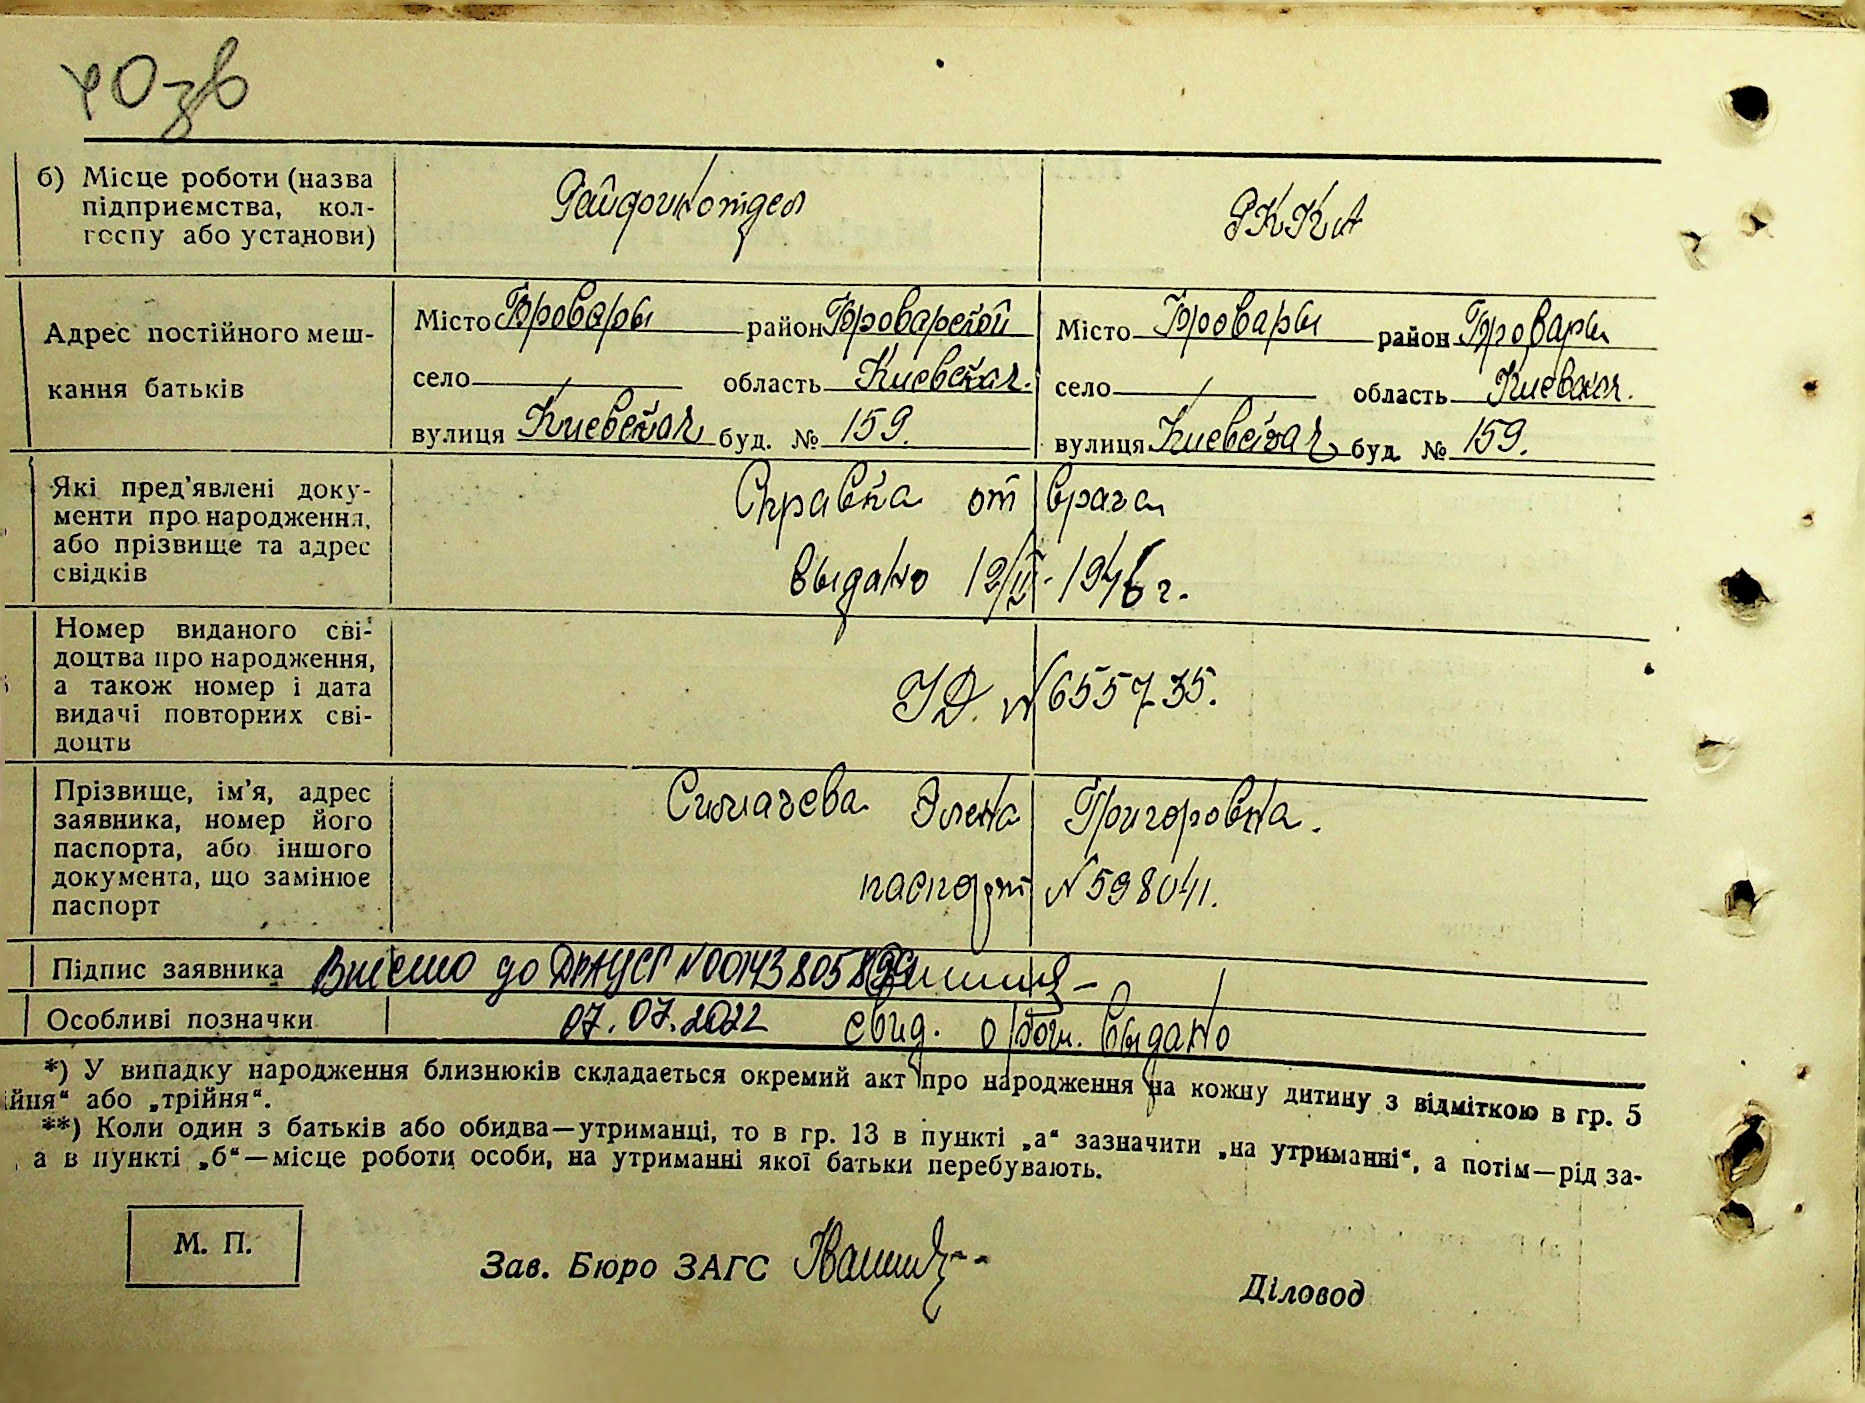 б) Місце роботи (назва
підприємства, кол-
госпу або установи)
Райфинотдел
РККА
Адрес постійного меш-
кання батьків
Місто Бровары район Броварской
село — область Киевская.
вулиця Киевская буд. № 159.
Місто Бровары район Бровары
село — область Киевская.
вулиця Киевская буд. № 159.
Які пред'явлені доку-
менти про народження,
або прізвище та адрес
свідків
Справка от врача
выдано 12/II-1946 г.
Номер виданого сві-
доцтва про народження,
а також номер і дата
видачі повторних сві-
доцтв
N 655735.
Прізвище, ім'я, адрес
заявника, номер його
паспорта, або іншого
документа, що замінює
паспорт
Елена Григоровна.
паспорт N 598041.
Підпис заявника
Внесено до ДРАЦСГ N 00143805899
Особливі позначки
07.07.2022 свид. о рож. выдано
*) У випадку народження близнюків складається окремий акт про народження на кожну дитину з відміткою в гр. 5
ійня“ або „трійня“.
**) Коли один з батьків або обидва—утриманці, то в гр. 13 в пункті „а“ зазначити „на утриманні“, а потім—рід за-
, а в пункті „б“—місце роботи особи, на утриманні якої батьки перебувають.
М. П.
Зав. Бюро ЗАГС
Діловод